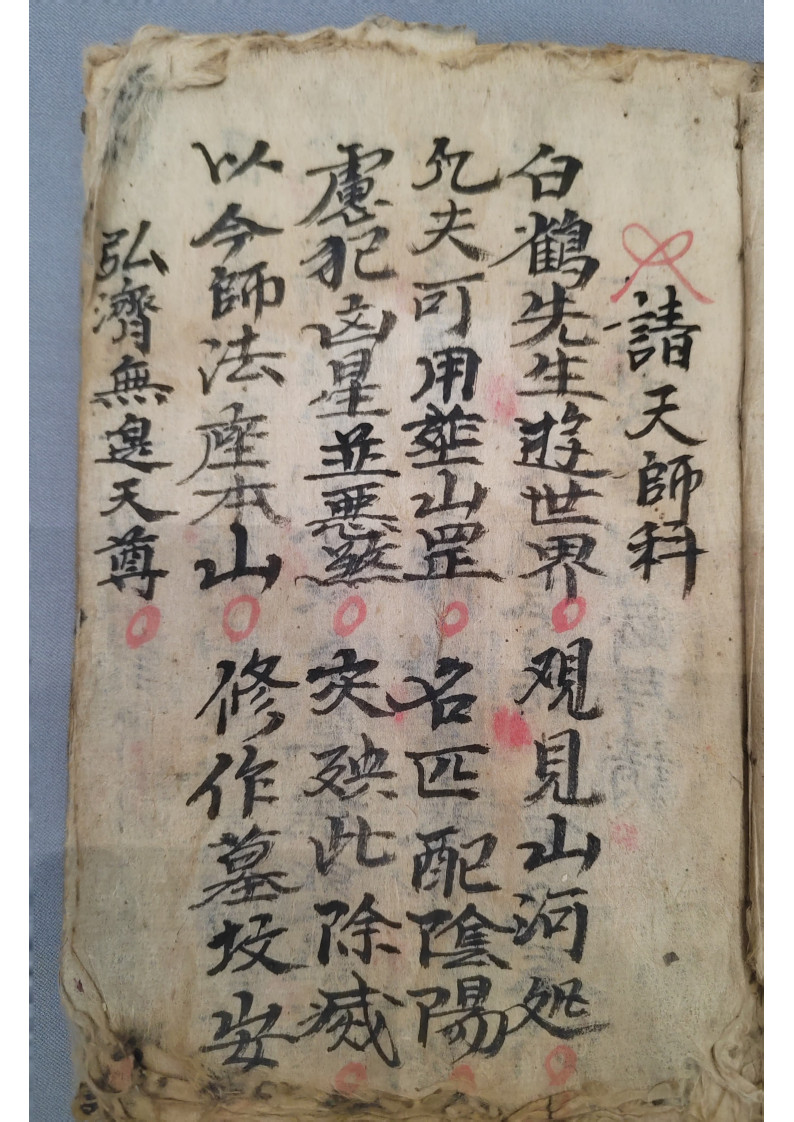 請天師科
白鶴先生遊世界 观見山河処
凢夫可用塟山罡 名匹配陰陽
慮犯凶星並惡煞 灾殃此除滅
以今師法座本山 修作墓坟安
弘濟無邉天尊